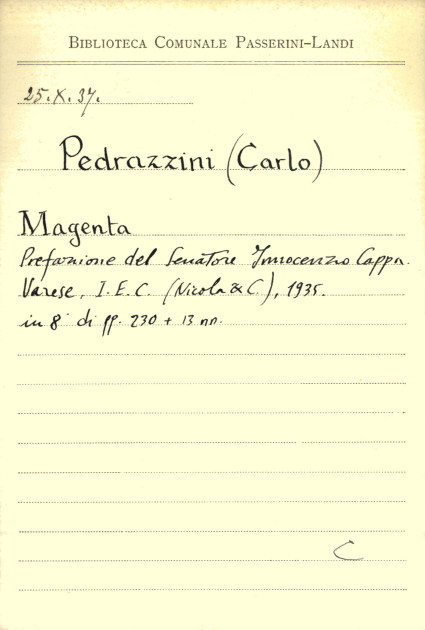 BIBLIOTECA COMUNALE PASSERINI-LANDI
25.X.37.
Pedrazzini (Carlo)
Magenta
Prefazione del Senatore Innocenzo Cappa.
Varese, I.E.C. (Nicola & C.), 1935.
in 8° di pp. 230 + 13 nn.
C